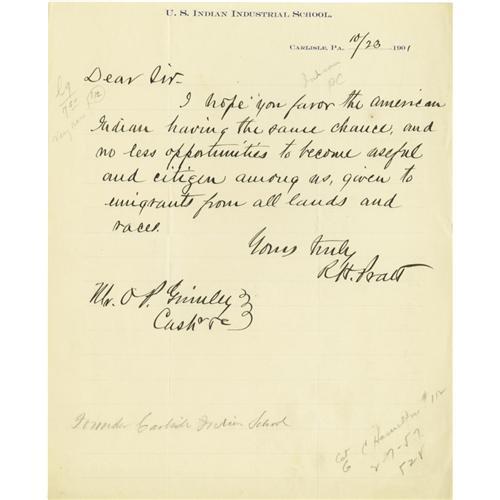 U. S. INDIAN INDUSTRIAL SCHOOL.
CARLISLE, PA. 10/23 1901
Indian
PC
Dear Sir.
I hope you favor the american
Indian having the same chance, and
no less opportunities to become useful
and citizen among us, given to
emigrants from all lands and
races.
Yours truly
R H. Pratt
Mr. O P. Grimley
Cash &c
Founder Carlisle Indian School
C Hamilton # 112
2-7-57
528